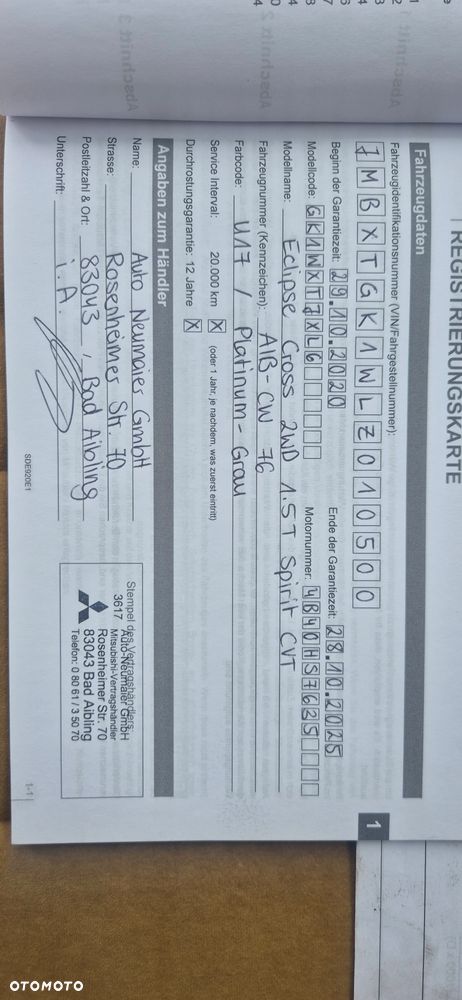 REGISTRIERUNGSKARTE
Fahrzeugdaten
Fahrzeugidentifikationsnummer (VIN/Fahrgestellnummer):
JMBXTGK1WLZ010500
Beginn der Garantiezeit: 29.10.2020 Ende der Garantiezeit: 28.10.2025
Modellcode: GK1WXTJXL6 Motornummer: 4B40HS7625
Modellname: Eclipse Cross 2WD 1.5T Spirit CVT
Fahrzeugnummer (Kennzeichen): AIB-CW 76
Farbcode: U17 / Platinum-Grau
Service Interval: 20.000 km X (oder 1 Jahr, je nachdem, was zuerst eintritt)
Durchrostungsgarantie: 12 Jahre X
Angaben zum Händler
Name: Auto Neumaier GmbH
Strasse: Rosenheimer Str. 70
Postleitzahl & Ort: 83043, Bad Aibling
Unterschrift: i.A.
Stempel des Vertragshändlers:
3617 Auto-Neumaier GmbH
Mitsubishi-Vertragshändler
Rosenheimer Str. 70
83043 Bad Aibling
Telefon: 0 80 61 / 3 50 70
SDE920E1
1-1
1
OTOMOTO